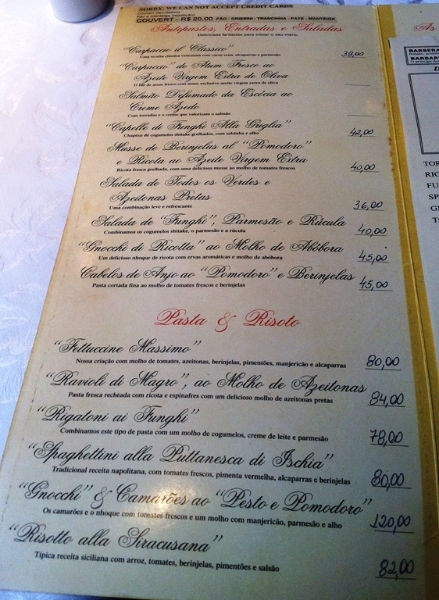 SORRY, WE CAN NOT ACCEPT CREDIT CARDS
COUVERT - R$ 20,00 PÃO - GRISSINI - TRANCINHA - PATÊ - MANTEIGA
Antipastos, Entradas e Saladas
"Carpaccio il Classico"
38,00
"Carpaccio" de Atum Fresco ao
Azeite Virgem Extra de Oliva
Salmão Defumado da Escócia ao
Creme Azedo
"Capelle di Funghi Alla Griglia"
42,00
Musse de Berinjelas al "Pomodoro"
e Ricota ao Azeite Virgem Extra
Ricota fresca grelhada, com uma deliciosa musse ao molho de tomates frescos
40,00
Salada de Todos os Verdes e
Azeitonas Pretas
Uma combinação leve e refrescante
36,00
Salada de "Funghi", Parmesão e Rúcula
Combinamos os cogumelos shitake, o parmesão e a rúcula
40,00
"Gnocchi di Ricotta" ao Molho de Abóbora
Um delicioso nhoque de ricota com ervas aromáticas e molho de abóbora
45,00
Cabelos de Anjo ao "Pomodoro" e Berinjelas
Pasta cortada fina ao molho de tomates frescos e berinjelas
45,00
Pasta & Risoto
"Fettuccine Massimo"
Nossa criação com molho de tomate, azeitonas, berinjelas, pimentões, manjericão e alcaparras
80,00
"Ravioli di Magro", ao Molho de Azeitonas
Pasta fresca recheada com ricota e espinafres com um delicioso molho de azeitonas pretas
84,00
"Rigatoni ai Funghi"
Combinamos este tipo de pasta com um molho de cogumelos, creme de leite e parmesão
78,00
"Spaghettini alla Puttanesca di Ischia"
Tradicional receita napolitana, com tomates frescos, pimenta vermelha, alcaparras e berinjelas
80,00
"Gnocchi" & Camarões ao "Pesto e Pomodoro"
Os camarões e o nhoque com tomates frescos e um molho com manjericão, parmesão e alho
120,00
"Risotto alla Siracusana"
Típica receita siciliana com arroz, tomates, berinjelas, pimentões e salsão
82,00
As
BARBERA
BARBAR